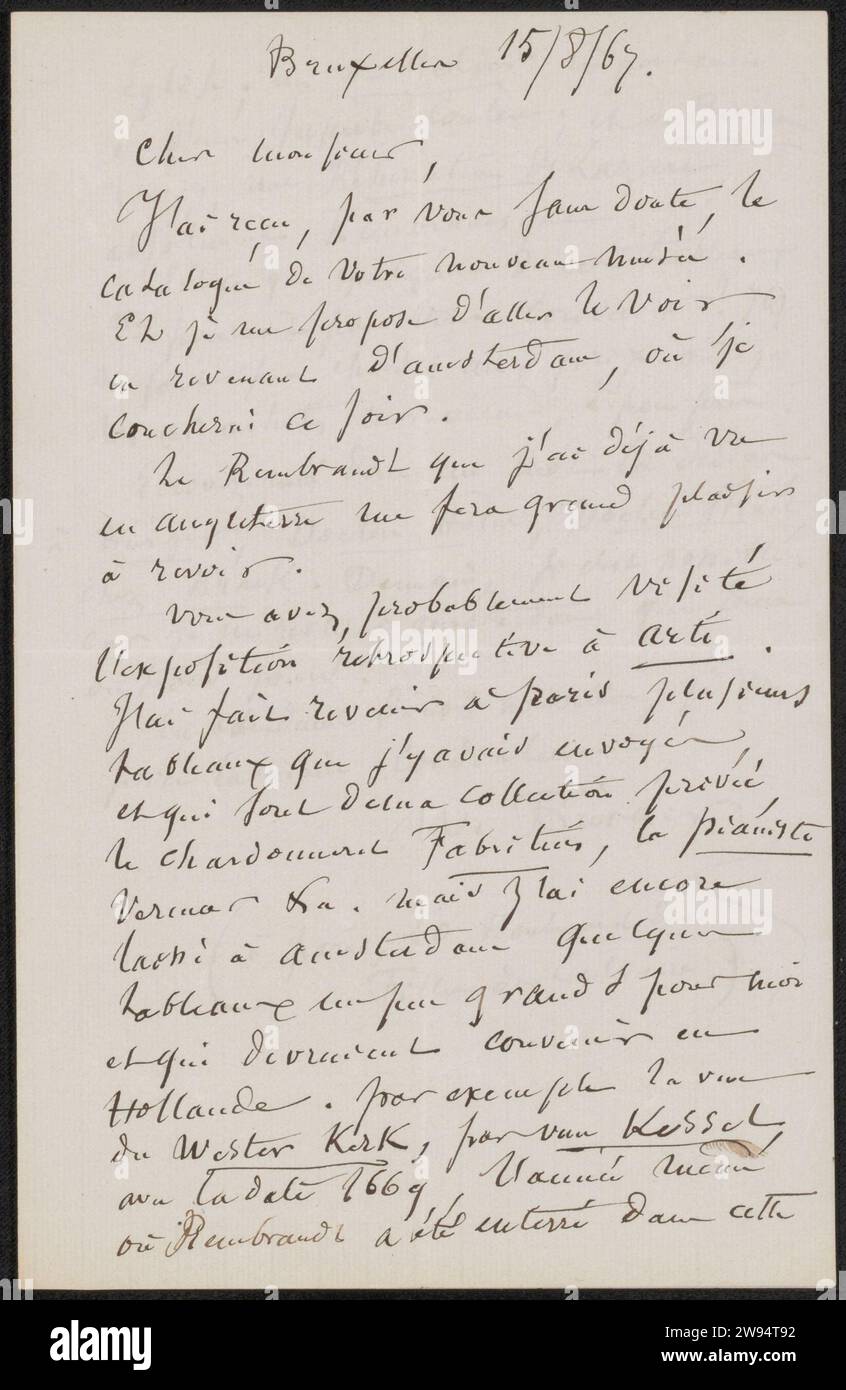 Bruxelles 15/8/67.
Cher monsieur,
J'ai recu, par vous sans doute, le
catalogue de votre nouveau musée.
Et je me propose d'aller le voir
en revenant d'amsterdam, où je
coucherai ce soir.
Le Rembrandt que j'ai déjà vu
en angleterre me fera grand plaisir
à revoir.
vous avez, probablement visité
l'exposition rétrospective à arti.
J'ai fait revenir à paris plusieurs
tableaux que j'y avais envoyés
et qui sont de ma collection privée
le chardonneret Fabritius, la pianiste
Vermeer &a. mais j'ai encore
laissé à amsterdam quelques
tableaux un peu grands pour moi
et qui devraient convenir en
Hollande. par exemple la vue
du Wester Kerk, par van Kessel,
avec la date 1669, l'année même
où Rembrandt a été enterré dans cette
alamy
Image ID: 2W94T92
www.alamy.com